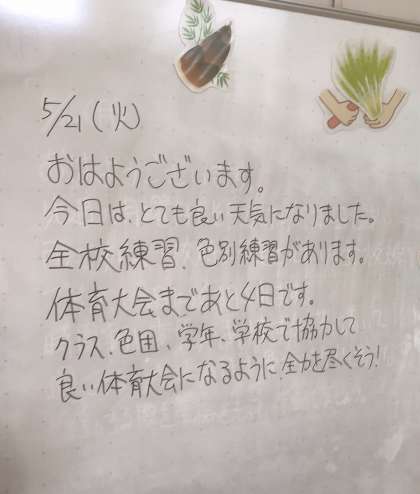 5/21(火)
おはようございます。
今日は、とても良い天気になりました。
全校練習、色別練習があります。
体育大会まであと4日です。
クラス、色団、学年、学校で協力して
良い体育大会になるように、全力を尽くそう!